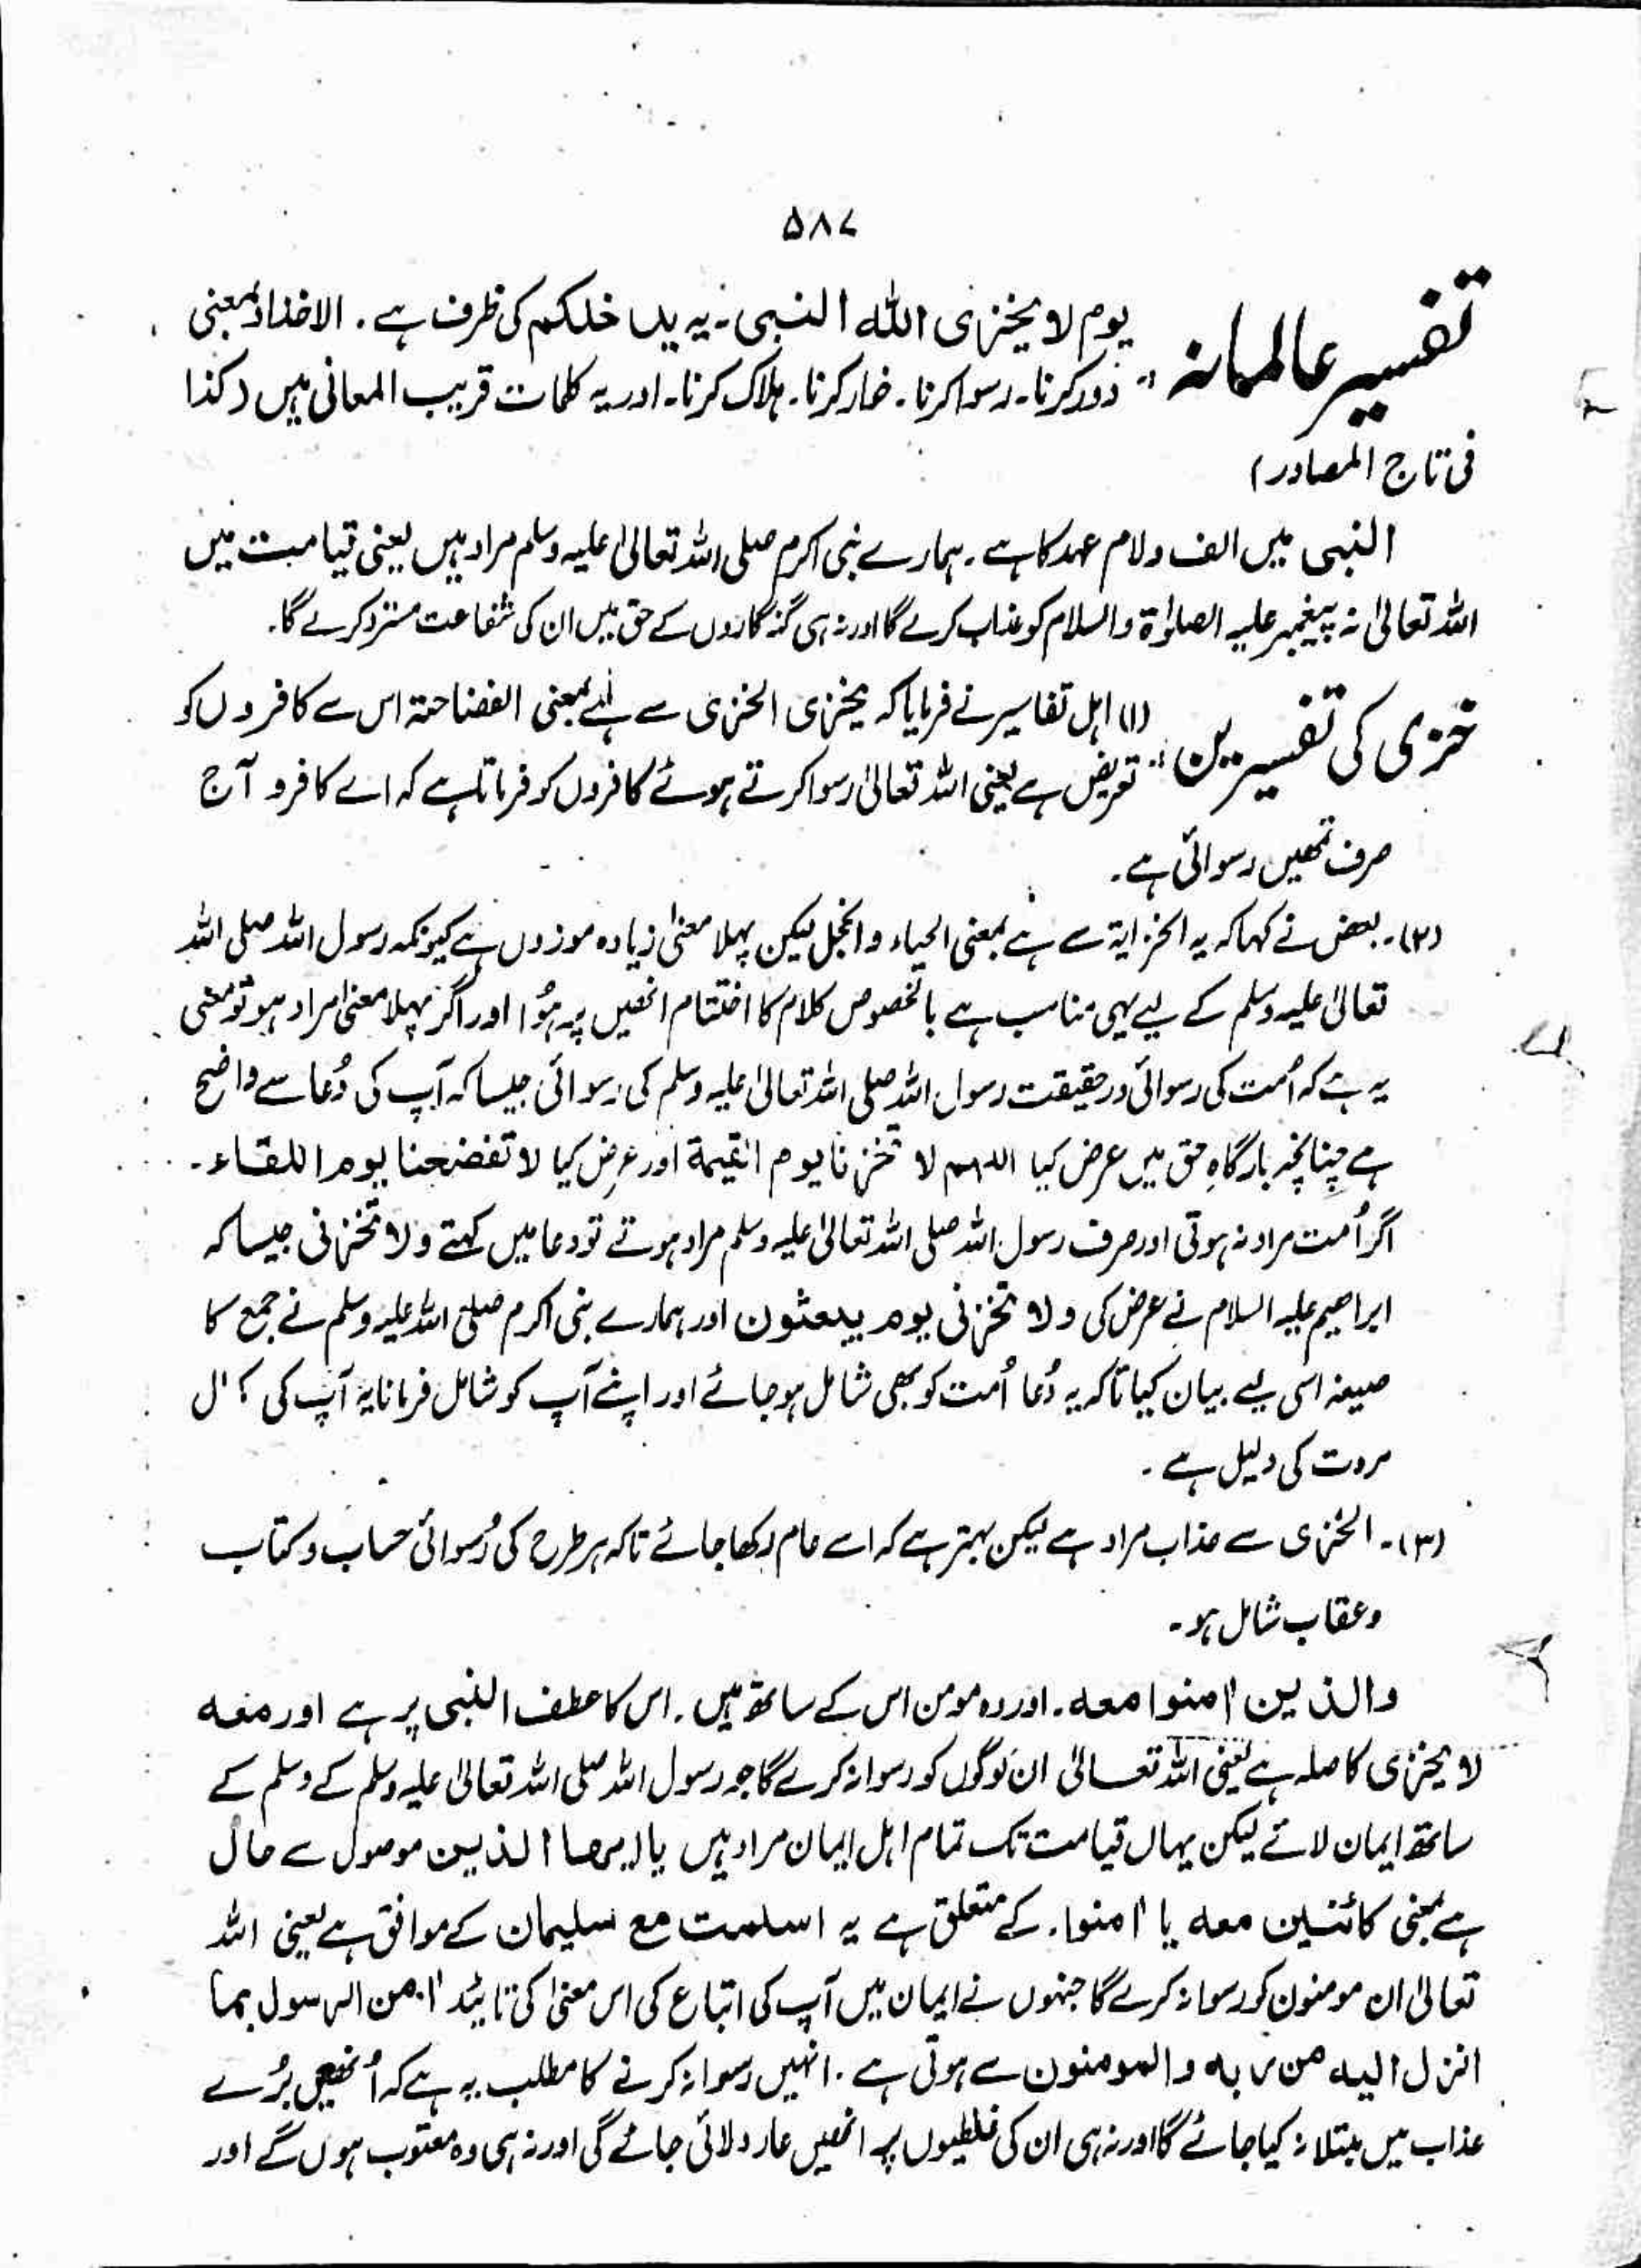 ۵۸۷
تفسیر عالمانہ
یوم لا یخزی اللہ النبی ۔ یہ ید خلکم کی ظرف ہے ۔ الاخذاد بمعنی
دور کرنا۔ رسوا کرنا۔ خار کرنا۔ ہلاک کرنا۔ اور یہ کلمات قریب المعانی ہیں (کذا
فی تاج المصادر)
النبی میں الف ولام عہد کا ہے ۔ ہمارے نبی اکرم صلی اللہ تعالیٰ علیہ وسلم مراد ہیں یعنی قیامت میں
اللہ تعالیٰ نہ پیغمبر علیہ الصلوٰۃ والسلام کو عذاب کرے گا اور نہ ہی گنہگاروں کے حق میں ان کی شفاعت مسترد کرے گا۔
خزی کی تفسیریں
(۱) اہل تفاسیر نے فرمایا کہ یخزی الخزی سے ہے بمعنی الفضاحۃ اس سے کافروں کو
تعریض ہے یعنی اللہ تعالیٰ رسوا کرتے ہوئے کافروں کو فرماتا ہے کہ اے کافرو آج
صرف تمھیں رسوائی ہے ۔
(۲)۔ بعض نے کہا کہ یہ الخزایۃ سے ہے بمعنی الحیاء والخجل لیکن پہلا معنیٰ زیادہ موزوں ہے کیونکہ رسول اللہ صلی اللہ
تعالیٰ علیہ وسلم کے لیے یہی مناسب ہے بالخصوص کلام کا اختتام انھیں پر ہُوا اور اگر پہلا معنیٰ مراد ہو تو معنی
یہ ہے کہ اُمت کی رسوائی درحقیقت رسول اللہ صلی اللہ تعالیٰ علیہ وسلم کی رسوائی جیسا کہ آپ کی دُعا سے واضح
ہے چنانچہ بارگاہِ حق میں عرض کیا اللہم لا تخزنا یوم القیمۃ اور عرض کیا لا تفضحنا یوم اللقاء ۔
اگر اُمت مراد نہ ہوتی اور صرف رسول اللہ صلی اللہ تعالیٰ علیہ وسلم مراد ہوتے تو دعا میں کہتے ولا تخزنی جیسا کہ
ابراھیم علیہ السلام نے عرض کی ولا تخزنی یوم یبعثون اور ہمارے نبی اکرم صلی اللہ علیہ وسلم نے جمع کا
صیغہ اسی لیے بیان کیا تاکہ یہ دُعا اُمت کو بھی شامل ہو جائے اور اپنے آپ کو شامل فرمانا یہ آپ کی کمال
مروت کی دلیل ہے ۔
(۳)۔ الخزی سے عذاب مراد ہے لیکن بہتر ہے کہ اسے عام رکھا جائے تاکہ ہر طرح کی رُسوائی حساب و کتاب
وعقاب شامل ہو ۔
والذین اٰمنوا معہ ۔ اور وہ مومن اس کے ساتھ ہیں ۔ اس کا عطف النبی پر ہے اور معہ
لا یخزی کا صلہ ہے یعنی اللہ تعالیٰ ان لوگوں کو رسوا نہ کرے گا جو رسول اللہ صلی اللہ تعالیٰ علیہ وسلم کے وسلم کے
ساتھ ایمان لائے لیکن یہاں قیامت تک تمام اہل ایمان مراد ہیں یا الذین موصول سے حال
ہے بمعنی کائنین معہ یا اٰمنوا ۔ کے متعلق ہے یہ اسلمت مع سلیمان کے موافق ہے یعنی اللہ
تعالیٰ ان مومنون کو رسوا نہ کرے گا جنہوں نے ایمان میں آپ کی اتباع کی اس معنیٰ کی تائید اٰمن الرسول بما
انزل الیہ من ربہ والمومنون سے ہوتی ہے ۔ انہیں رسوا نہ کرنے کا مطلب یہ ہے کہ اُنھیں بُرے
عذاب میں مبتلا نہ کیا جائے گا اور نہ ہی ان کی غلطیوں پر انھیں عار دلائی جائے گی اور نہ ہی وہ معتوب ہوں گے اور